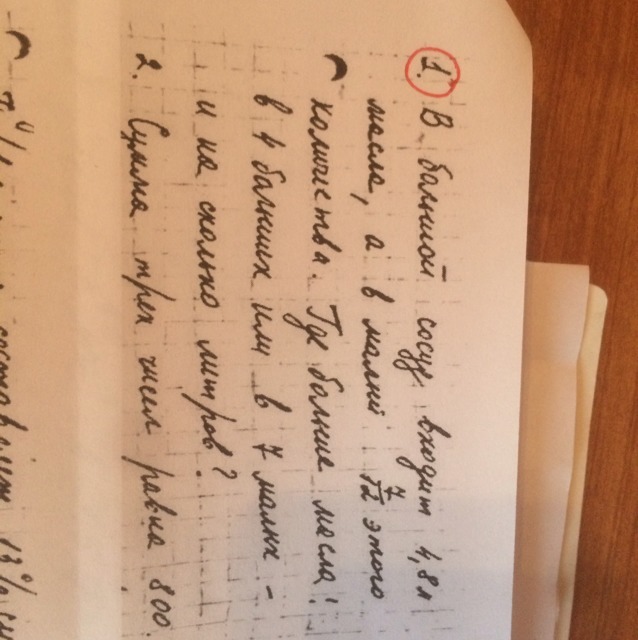 1. В болшой сосуд входит 4,8л
масла, а в малий 7/12 этого
количства. Где болше масла:
в 4 болших или в 7 малих -
и на сколько литров?
2. Сумма трех чисел равна 800.
составляет 13%